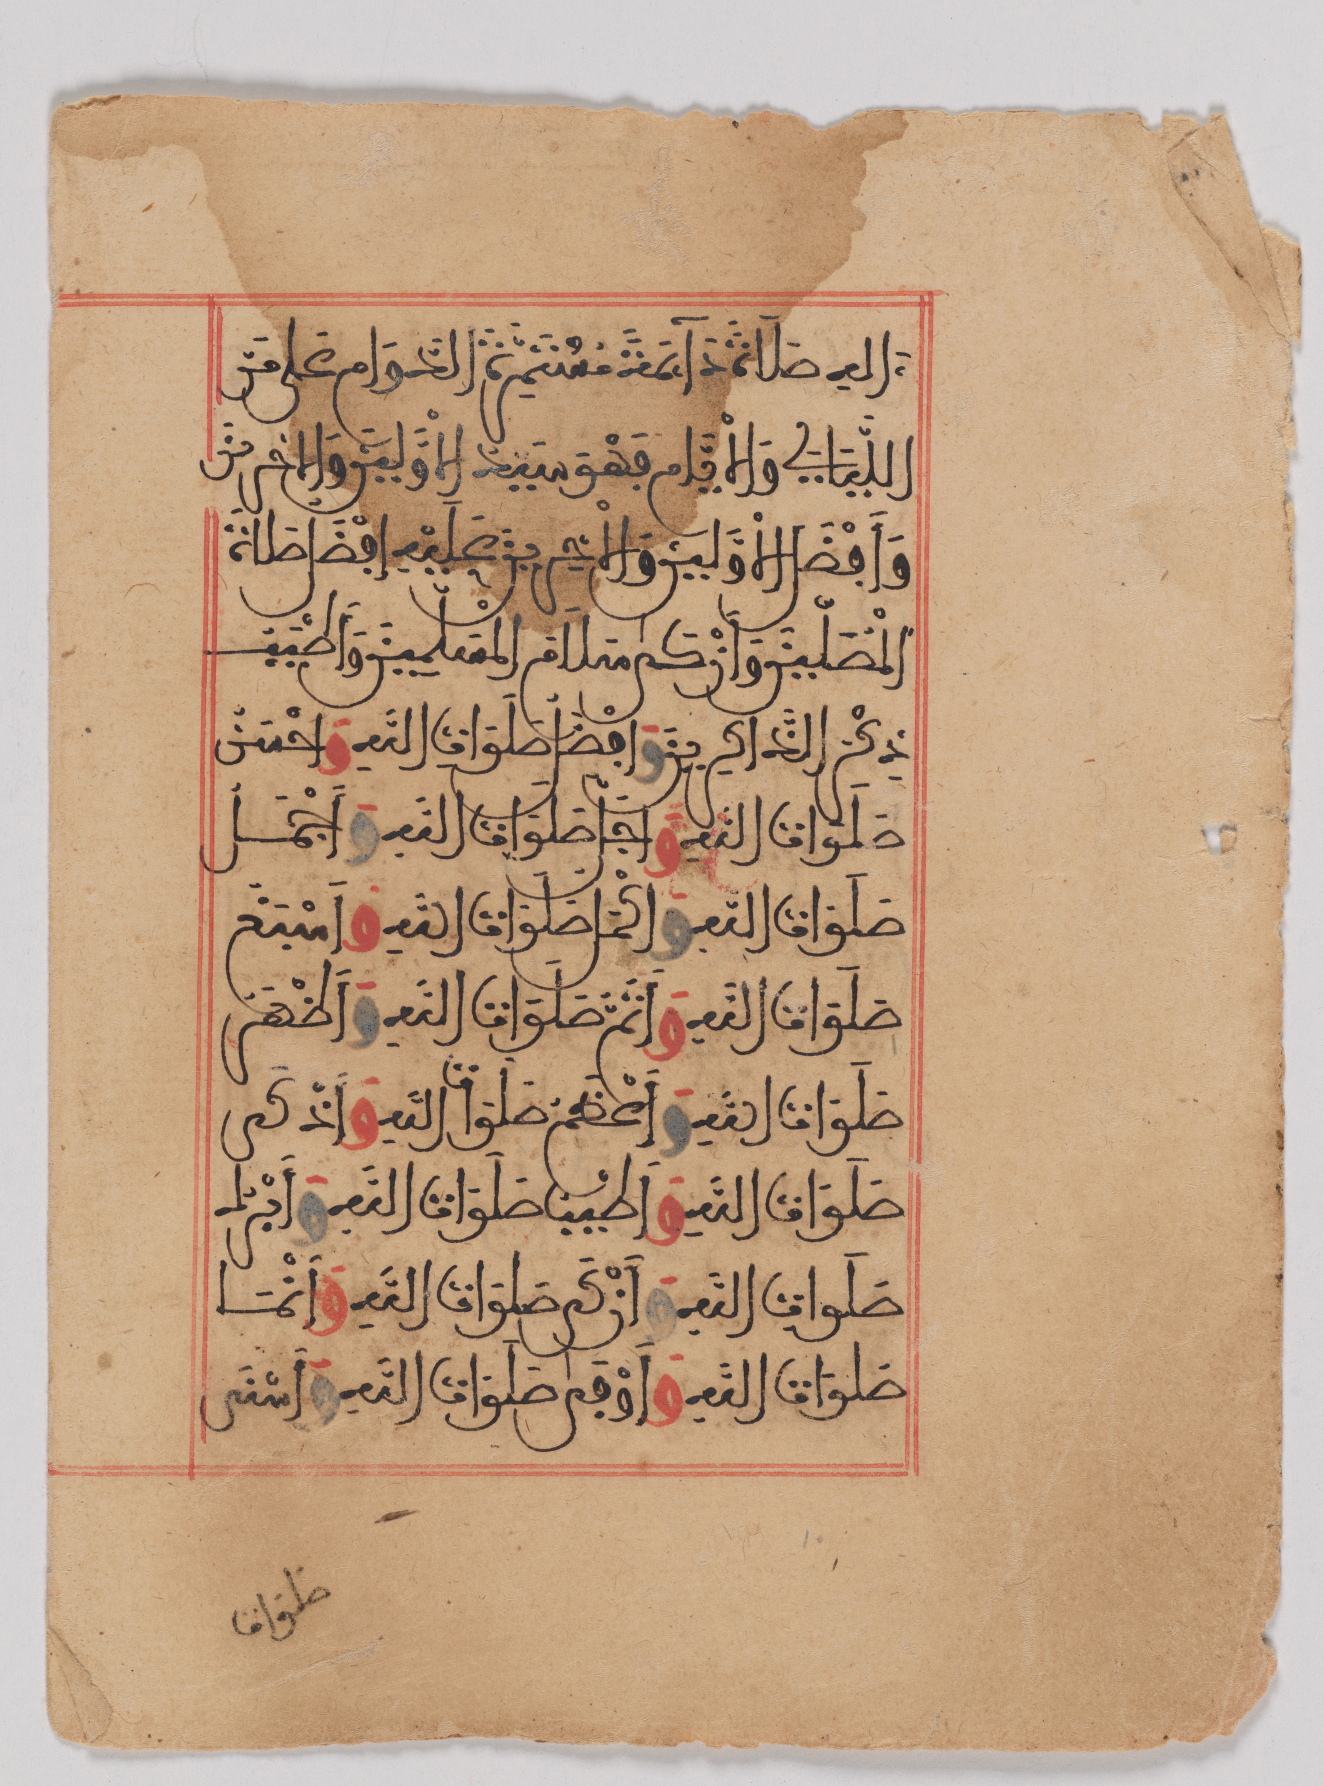 ءاله صلاة دائمة مستمرة الدوام على مر
الليالي والايام فهو سيد الاولين والاخرين
وأفضل الاولين والاخرين عليه افضل صلاة
المصلين وأزكى سلام المسلمين وأطيب
ذكر الذاكرين وافضل صلوات الله واحسن
صلوات الله واجل صلوات الله وأجمل
صلوات الله واكمل صلوات الله وأسبغ
صلوات الله وأتم صلوات الله وأظهر
صلوات الله وأعظم صلوات الله وأذكى
صلوات الله وأطيب صلوات الله وأبرك
صلوات الله وأزكى صلوات الله وأنما
صلوات الله وأوفى صلوات الله وأسنى
صلوات